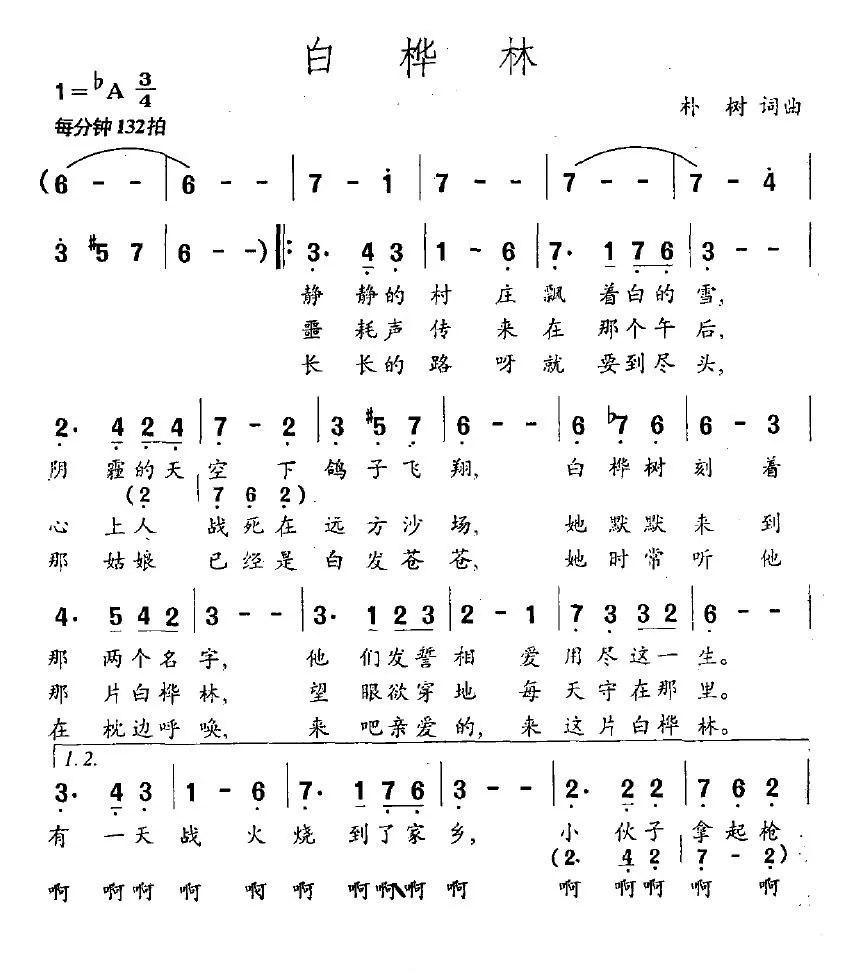 白 桦 林
1=♭A 3/4
每分钟132拍
朴 树 词曲
(6 - - | 6 - - | 7 - 1 | 7 - - | 7 - - | 7 - 4 |
3 #5 7 | 6 - -) ‖: 3. 4 3 | 1 - 6 | 7. 1 7 6 | 3 - - |
静 静的 村 庄 飘 着白的 雪,
噩 耗声 传 来 在 那个午 后,
长 长的 路 呀 就 要到尽 头,
2. 4 2 4 | 7 - 2 | 3 #5 7 | 6 - - | 6 ♭7 6 | 6 - 3 |
阴 霾的天 空 下 鸽 子 飞 翔, 白 桦 树 刻 着
(2 | 7 6 2)
心 上人 战 死 在 远 方 沙 场, 她 默 默 来 到
那 姑娘 已 经 是 白 发 苍 苍, 她 时 常 听 他
4. 5 4 2 | 3 - - | 3. 1 2 3 | 2 - 1 | 7 3 3 2 | 6 - - |
那 两个名 字, 他 们发誓 相 爱 用 尽 这一 生。
那 片白桦 林, 望 眼欲穿 地 每 天 守 在那 里。
在 枕边呼 唤, 来 吧亲爱 的, 来 这 片 白桦 林。
1. 2.
3. 4 3 | 1 - 6 | 7. 1 7 6 | 3 - - | 2. 2 2 | 7 6 2 |
有 一天 战 火 烧 到了家 乡, 小 伙子 拿 起 枪
(2. 4 2 | 7 - 2)
啊 啊啊 啊 啊 啊 啊啊啊 啊 啊 啊啊 啊 啊